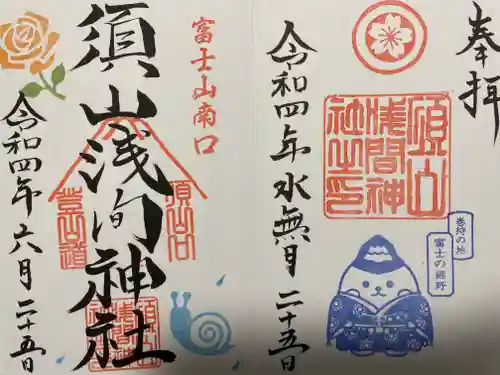 奉拝
須山
浅間神
社之印
巻狩の地
富士の裾野
令和四年水無月二十五日
富士山南口
須山浅間神社
須山口
登山道
須山
浅間神
社之印
令和四年六月二十五日